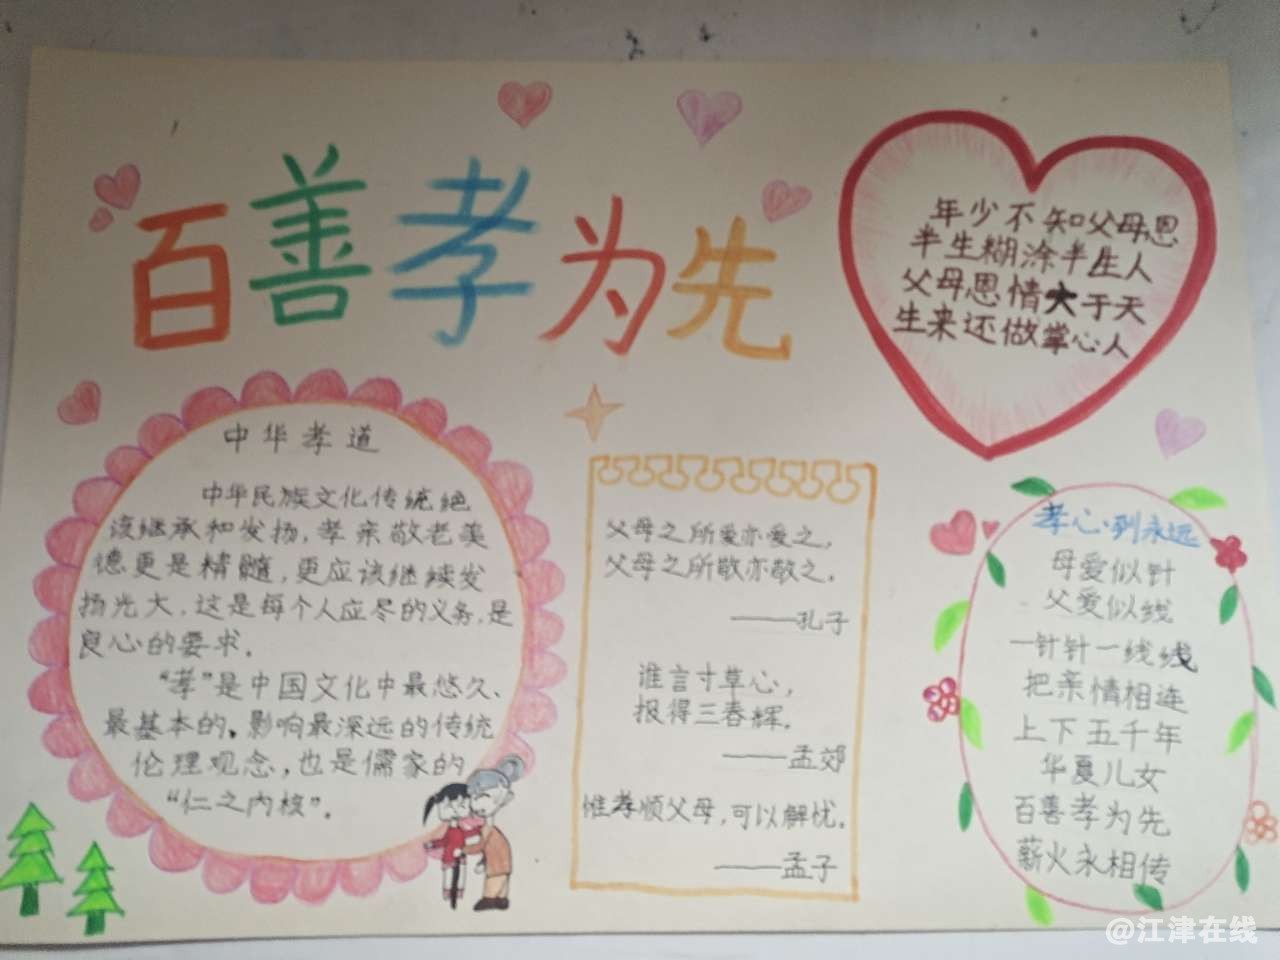 百善孝为先
年少不知父母恩
半生糊涂半生人
父母恩情大于天
生来还做掌心人
中华孝道
中华民族文化传统绝
该继承和发扬,孝亲敬老美
德更是精髓,更应该继续发
扬光大,这是每个人应尽的义务,是
良心的要求.
“孝”是中国文化中最悠久、
最基本的,影响最深远的传统
伦理观念,也是儒家的
“仁之内核”.
父母之所爱亦爱之,
父母之所敬亦敬之.
——孔子
谁言寸草心,
报得三春辉.
——孟郊
惟孝顺父母,可以解忧.
——孟子
孝心到永远
母爱似针
父爱似线
一针针一线线
把亲情相连
上下五千年
华夏儿女
百善孝为先
薪火永相传
@江津在线